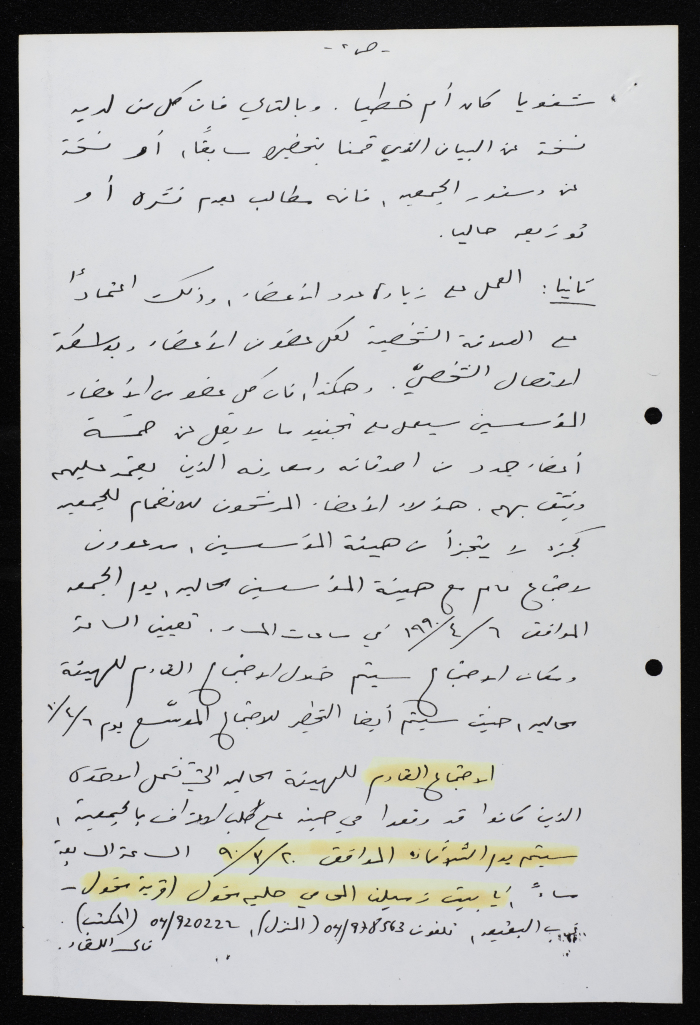 - ص ٢ -
شفويا كان أم خطيا. وبالتالي فان كل من لديه
نسخة عن البيان الذي قمنا بتحضيره سابقًا، أو نسخة
عن دستور الجمعيه، فانه مطالب بعدم نشره أو
توزيعه حاليا.
ثانيا: العمل على زيادة عدد الأعضاء، وذلك اعتمادًا
على العلاقة الشخصية لكل عضو من الأعضاء وبواسطة
الاتصال الشخصيّ. وهكذا، فان كل عضو من الأعضاء
المؤسسين سيعمل على تجنيد ما لا يقل عن خمسة
أعضاء جدد من اصدقائه ومعارفه الذين يعتمد عليهم
ويثق بهم. هؤلاء الأعضاء المرشحون للانضمام للجمعيه
كجزء لا يتجزأ من هيئة المؤسسين، مدعوون
لاجتماع عام مع هيئة المؤسسين الحاليه، يوم الجمعه
الموافق ٦/٤/١٩٩٠ في ساعات المساء. تعيين الساعة
ومكان الاجتماع سيتم خلال الاجتماع القادم للهيئة
الحاليه، حيث سيتم أيضا التحضير للاجتماع الموسّع يوم ٦/٤/٩٠
الاجتماع القادم للهيئة الحاليه التي تشمل الاخوة
الذين كانوا قد وقعوا في حينه على طلب الاعتراف بالجمعية،
سيتم يوم الثلاثاء الموافق ٢٠/٣/٩٠ الساعة السابعة
مساءً، في بيت زميلنا المحامي حليم مخول (قرية مخول -
قرب البقيعه، تلفون 04/978563 (المنزل)، 04/920222 (المكتب).
فالى اللقاء.